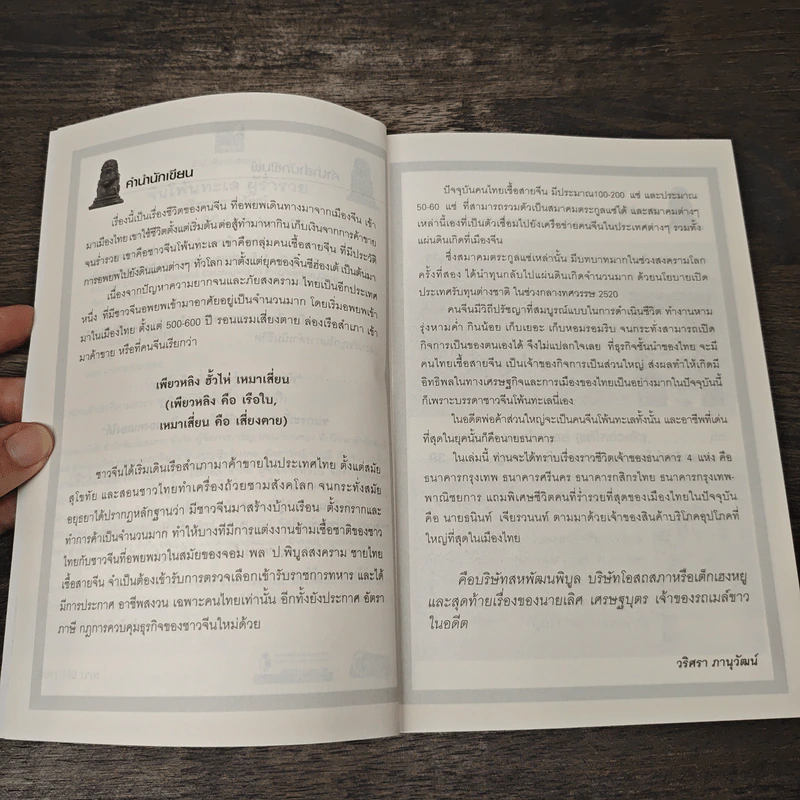 คำนำนักเขียน
เรื่องนี้เป็นเรื่องชีวิตของคนจีน ที่อพยพเดินทางมาจากเมืองจีน เข้า
มาเมืองไทย เขาใช้ชีวิตตั้งแต่เริ่มต้น ต่อสู้ทำมาหากิน เก็บเงินจากการค้าขาย
จนร่ำรวย เขาคือชาวจีนโพ้นทะเล เขาคือกลุ่มคนเชื้อสายจีน ที่มีประวัติ
การอพยพไปยังดินแดนต่างๆ ทั่วโลก มาตั้งแต่ยุคของจิ๋นซีฮ่องเต้ เป็นต้นมา
เนื่องจากปัญหาความยากจนและภัยสงคราม ไทยเป็นอีกประเทศ
หนึ่ง ที่มีชาวจีนอพยพเข้ามาอาศัยอยู่เป็นจำนวนมาก โดยเริ่มอพยพเข้า
มาในเมืองไทย ตั้งแต่ 500-600 ปี รอนแรมเสี่ยงตาย ล่องเรือสำเภา เข้า
มาค้าขาย หรือที่คนจีนเรียกว่า
เพียวหลิง ฮั้วไห่ เหมาเสี่ยน
(เพียวหลิง คือ เรือใบ,
เหมาเสี่ยน คือ เสี่ยงตาย)
ชาวจีนได้เริ่มเดินเรือสำเภามาค้าขายในประเทศไทย ตั้งแต่สมัย
สุโขทัย และสอนชาวไทยทำเครื่องถ้วยชามสังคโลก จนกระทั่งสมัย
อยุธยาได้ปรากฏหลักฐานว่า มีชาวจีนมาสร้างบ้านเรือน ตั้งรกรากและ
ทำการค้าเป็นจำนวนมาก ทำให้บางที่มีการแต่งงานข้ามเชื้อชาติของชาว
ไทยกับชาวจีนที่อพยพมาในสมัยของจอม พล ป.พิบูลสงคราม ชายไทย
เชื้อสายจีน จำเป็นต้องเข้ารับการตรวจเลือกเข้ารับราชการทหาร และได้
มีการประกาศ อาชีพสงวน เฉพาะคนไทยเท่านั้น อีกทั้งยังประกาศ อัตรา
ภาษี กฎการควบคุมธุรกิจของชาวจีนใหม่ด้วย
ปัจจุบันคนไทยเชื้อสายจีน มีประมาณ100-200 แซ่ และประมาณ
50-60 แซ่ ที่สามารถรวมตัวเป็นสมาคมตระกูลแซ่ได้ และสมาคมต่างๆ
เหล่านี้เองที่เป็นตัวเชื่อมไปยังเครือข่ายคนจีนในประเทศต่างๆ รวมทั้ง
แผ่นดินเกิดที่เมืองจีน
ซึ่งสมาคมตระกูลแซ่เหล่านั้น มีบทบาทมากในช่วงสงครามโลก
ครั้งที่สอง ได้นำทุนกลับไปแผ่นดินเกิดจำนวนมาก ด้วยนโยบายเปิด
ประเทศรับทุนต่างชาติ ในช่วงกลางทศวรรษ 2520
คนจีนมีวิถีปรัชญาที่สมบูรณ์แบบในการดำเนินชีวิต ทำงานหาม
รุ่งหามค่ำ กินน้อย เก็บเยอะ เก็บหอมรอมริบ จนกระทั่งสามารถเปิด
กิจการเป็นของตนเองได้ จึงไม่แปลกใจเลย ที่ธุรกิจชั้นนำของไทย จะมี
คนไทยเชื้อสายจีน เป็นเจ้าของกิจการเป็นส่วนใหญ่ ส่งผลทำให้เกิดมี
อิทธิพลในทางเศรษฐกิจและการเมืองของไทยเป็นอย่างมากในปัจจุบันนี้
ก็เพราะบรรดาชาวจีนโพ้นทะเลนี่เอง
ในอดีตพ่อค้าส่วนใหญ่จะเป็นคนจีนโพ้นทะเลทั้งนั้น และอาชีพที่เด่น
ที่สุดในยุคนั้นก็คือนายธนาคาร
ในเล่มนี้ ท่านจะได้ทราบเรื่องราวชีวิตเจ้าของธนาคาร 4 แห่ง คือ
ธนาคารกรุงเทพ ธนาคารศรีนคร ธนาคารกสิกรไทย ธนาคารกรุงเทพ-
พาณิชยการ แถมพิเศษชีวิตคนที่ร่ำรวยที่สุดของเมืองไทยในปัจจุบัน
คือ นายธนินท์ เจียรวนนท์ ตามมาด้วยเจ้าของสินค้าบริโภคอุปโภคที่
ใหญ่ที่สุดในเมืองไทย
คือบริษัทสหพัฒนพิบูล บริษัทโอสถสภาหรือเต็กเฮงหยู
และสุดท้ายเรื่องของนายเลิศ เศรษฐบุตร เจ้าของรถเมล์ขาว
ในอดีต
วริศรา ภานุวัฒน์